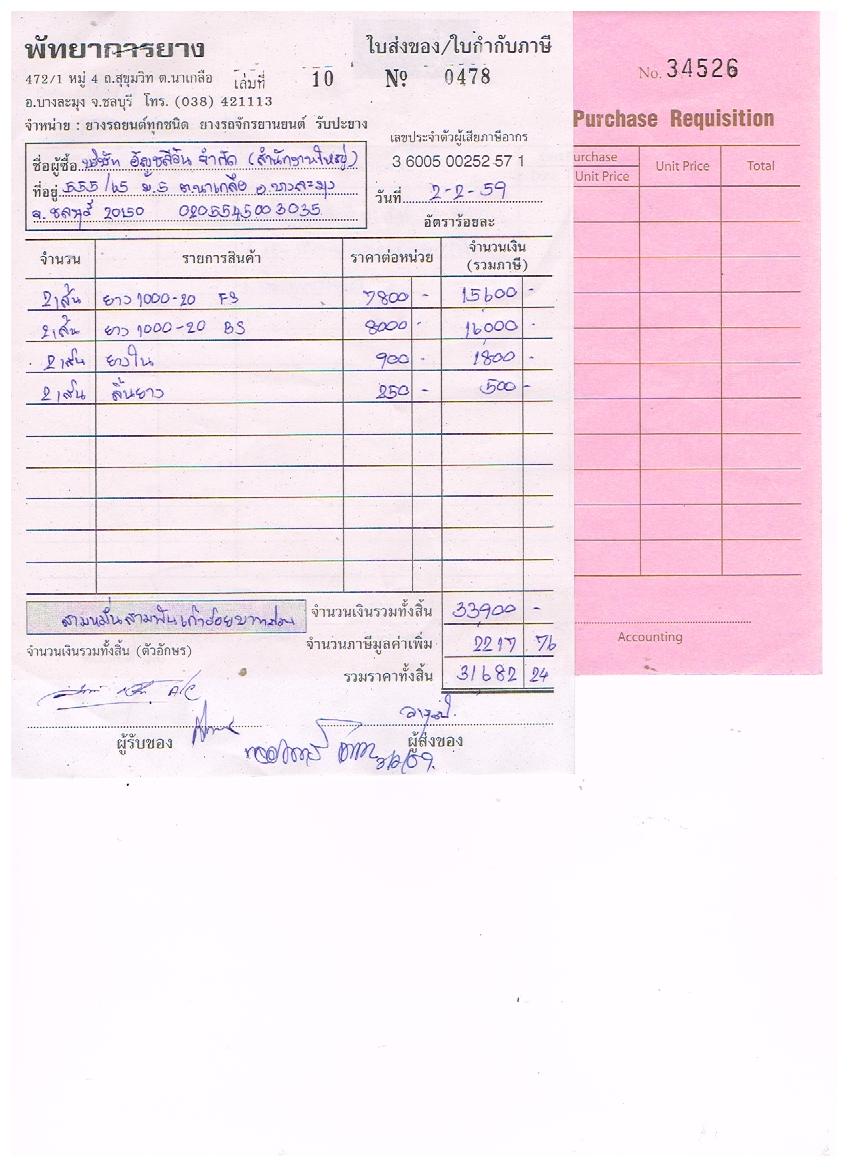 พัทยาการยาง
ใบส่งของ/ใบกำกับภาษี
472/1 หมู่ 4 ถ.สุขุมวิท ต.นาเกลือ เล่มที่ 10 Nº 0478
อ.บางละมุง จ.ชลบุรี โทร. (038) 421113
จำหน่าย : ยางรถยนต์ทุกชนิด ยางรถจักรยานยนต์ รับปะยาง
เลขประจำตัวผู้เสียภาษีอากร
3 6005 00252 57 1
ชื่อผู้ซื้อ บริษัท อัญชลีอัน จำกัด (สำนักงานใหญ่)
ที่อยู่ 555/65 ม.5 ต.นาเกลือ อ.บางละมุง
จ.ชลบุรี 20150 0205545003035
วันที่ 2-2-59
อัตราร้อยละ
จำนวน รายการสินค้า ราคาต่อหน่วย จำนวนเงิน (รวมภาษี)
2 เส้น ยาง 1000-20 FS 7800 - 15600 -
2 เส้น ยาง 1000-20 BS 8000 - 16000 -
2 เส้น ยางใน 900 - 1800 -
2 เส้น ลิ้นยาง 250 - 500 -
สามหมื่นสามพันเก้าร้อยบาทถ้วน จำนวนเงินรวมทั้งสิ้น 33900 -
จำนวนเงินรวมทั้งสิ้น (ตัวอักษร) จำนวนภาษีมูลค่าเพิ่ม 2217 76
รวมราคาทั้งสิ้น 31682 24
A/C
ผู้รับของ ผู้ส่งของ
3/2/59.
No. 34526
Purchase Requisition
urchase
Unit Price Unit Price Total
Accounting